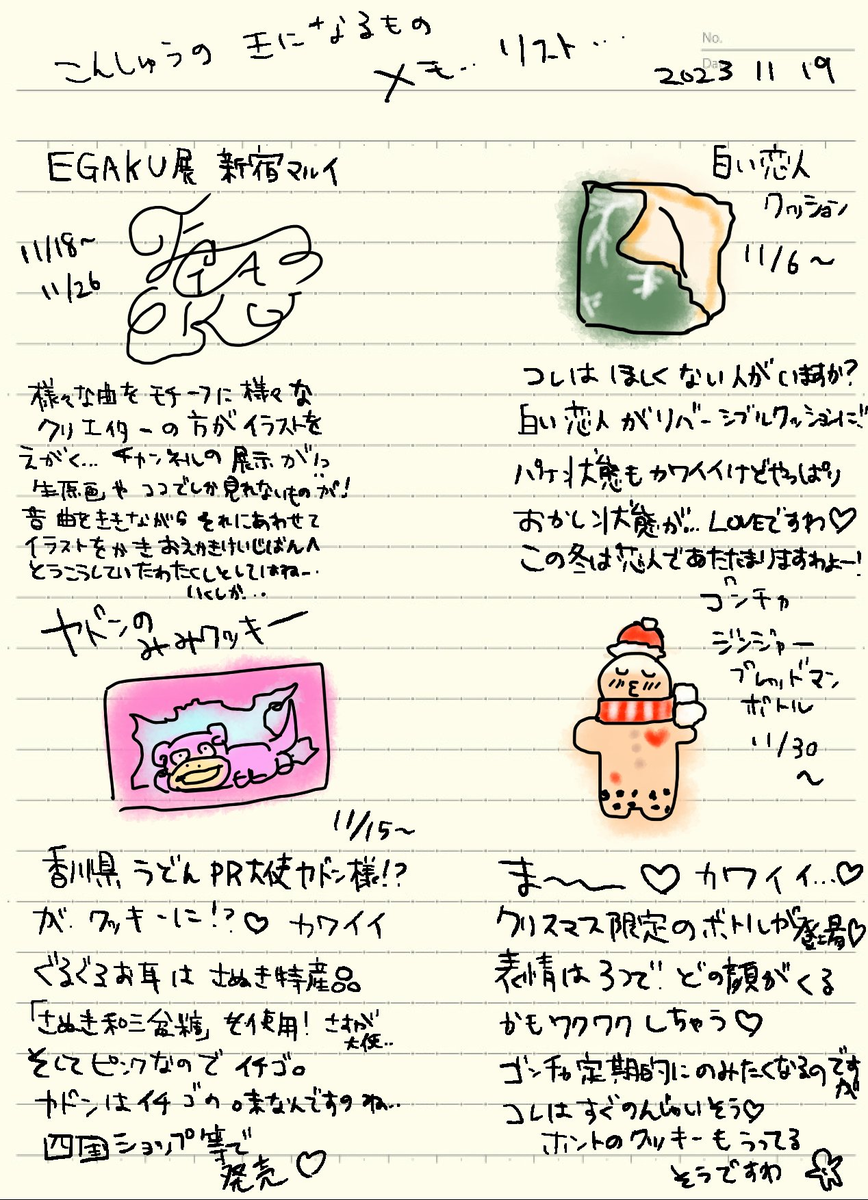 こんしゅうの 気になるもの
メモ.. リスト...
No.
2023 11 19
EGAKU展 新宿マルイ
11/18~
11/26
EGA
KU
様々な曲をモチーフに様々な
クリエイターの方がイラストを
えがく... チャンネルの展示が!っ
生原画や ココでしか見れないものが!
音曲をききながら それにあわせて
イラストをかき おえかきけいじばんへ
とうこうしていたわたくしとしてはね...
いくしか...
白い恋人
クッション
11/6~
コレは ほしくない人がいますか?
白い恋人 がリバーシブルクッションに!!
パケ状態もカワイイけどやっぱり
おかし状態が... LOVEですわ♡
この冬は恋人であたたまりますわよー!
ヤドンの
みみクッキー
11/15~
香川県 うどんPR大使ヤドン様!?
が クッキーに!?♡ カワイイ
ぐるぐるお耳は さぬき特産品
「さぬき和三盆糖」を使用! さすが
大使..
そしてピンクなので イチゴ。
ヤドンはイチゴの味なんですのね..
四国ショップ等で
発売♡
ゴンチャ
ジンジャー
ブレッドマン
ボトル
11/30
~
ま~~ ♡ カワイイ...♡
クリスマス限定のボトルが登場♡
表情は3つで! どの顔がくる
かもワクワクしちゃう♡
ゴンチャ定期的にのみたくなるのです
が
コレはすぐのんじゃいそう♡
ホントのクッキーもうってる
そうですわ